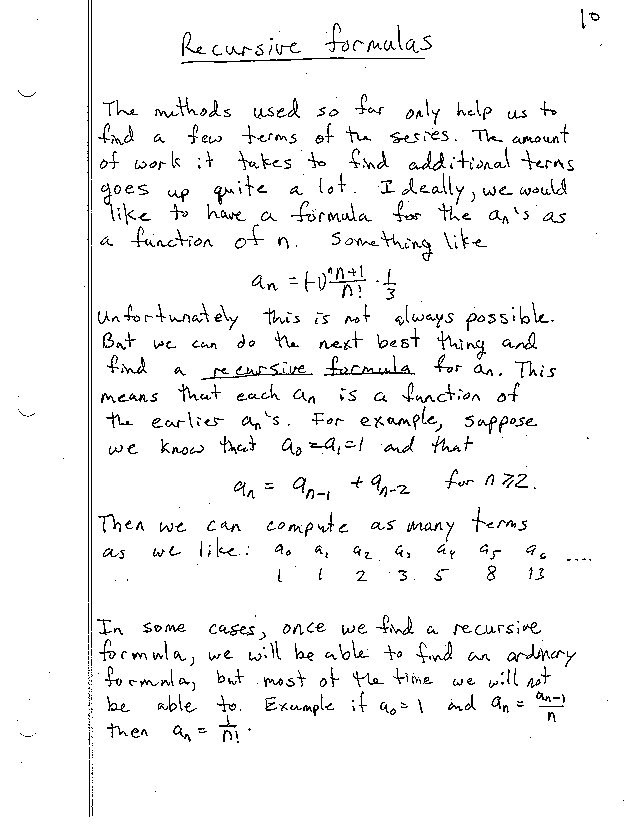 10
Recursive formulas
The methods used so far only help us to
find a few terms of the series. The amount
of work it takes to find additional terms
goes up quite a lot. Ideally, we would
like to have a formula for the aₙ's as
a function of n. Something like
aₙ = (-1)ⁿ (n+1)/n! · 1/3
Unfortunately this is not always possible.
But we can do the next best thing and
find a recursive formula for aₙ. This
means that each aₙ is a function of
the earlier aₙ's. For example, suppose
we know that a₀=a₁=1 and that
aₙ = aₙ₋₁ + aₙ₋₂ for n≥2.
Then we can compute as many terms
as we like: a₀ a₁ a₂ a₃ a₄ a₅ a₆ ....
1 1 2 3 5 8 13
In some cases, once we find a recursive
formula, we will be able to find an ordinary
formula, but most of the time we will not
be able to. Example if a₀=1 and aₙ = aₙ₋₁/n
then aₙ = 1/n! .